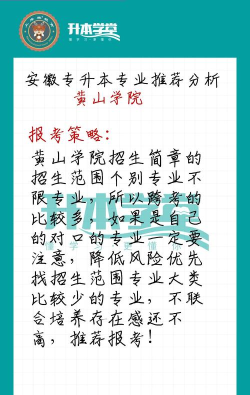 升本学堂
安徽专升本专业推荐分析
黄山学院
报考策略：
黄山学院招生简章的
招生范围个别专业不
限专业，所以跨考的
比较多，如果是自己
的对口的专业一定要
注意，降低风险优先
找招生范围专业大类
比较少的专业，不联
合培养存在感还不
高，推荐报考！
升本学堂